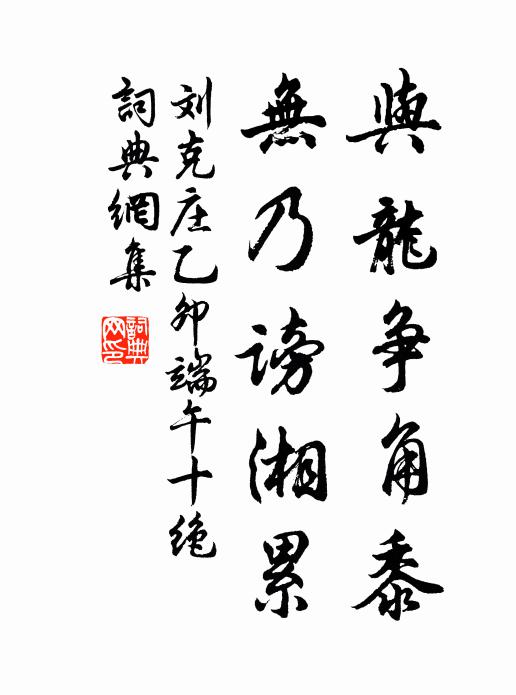 與龍争角黍
無乃謗湘累
刘克庄乙卯端午十绝
詞典網集
詞典
网印